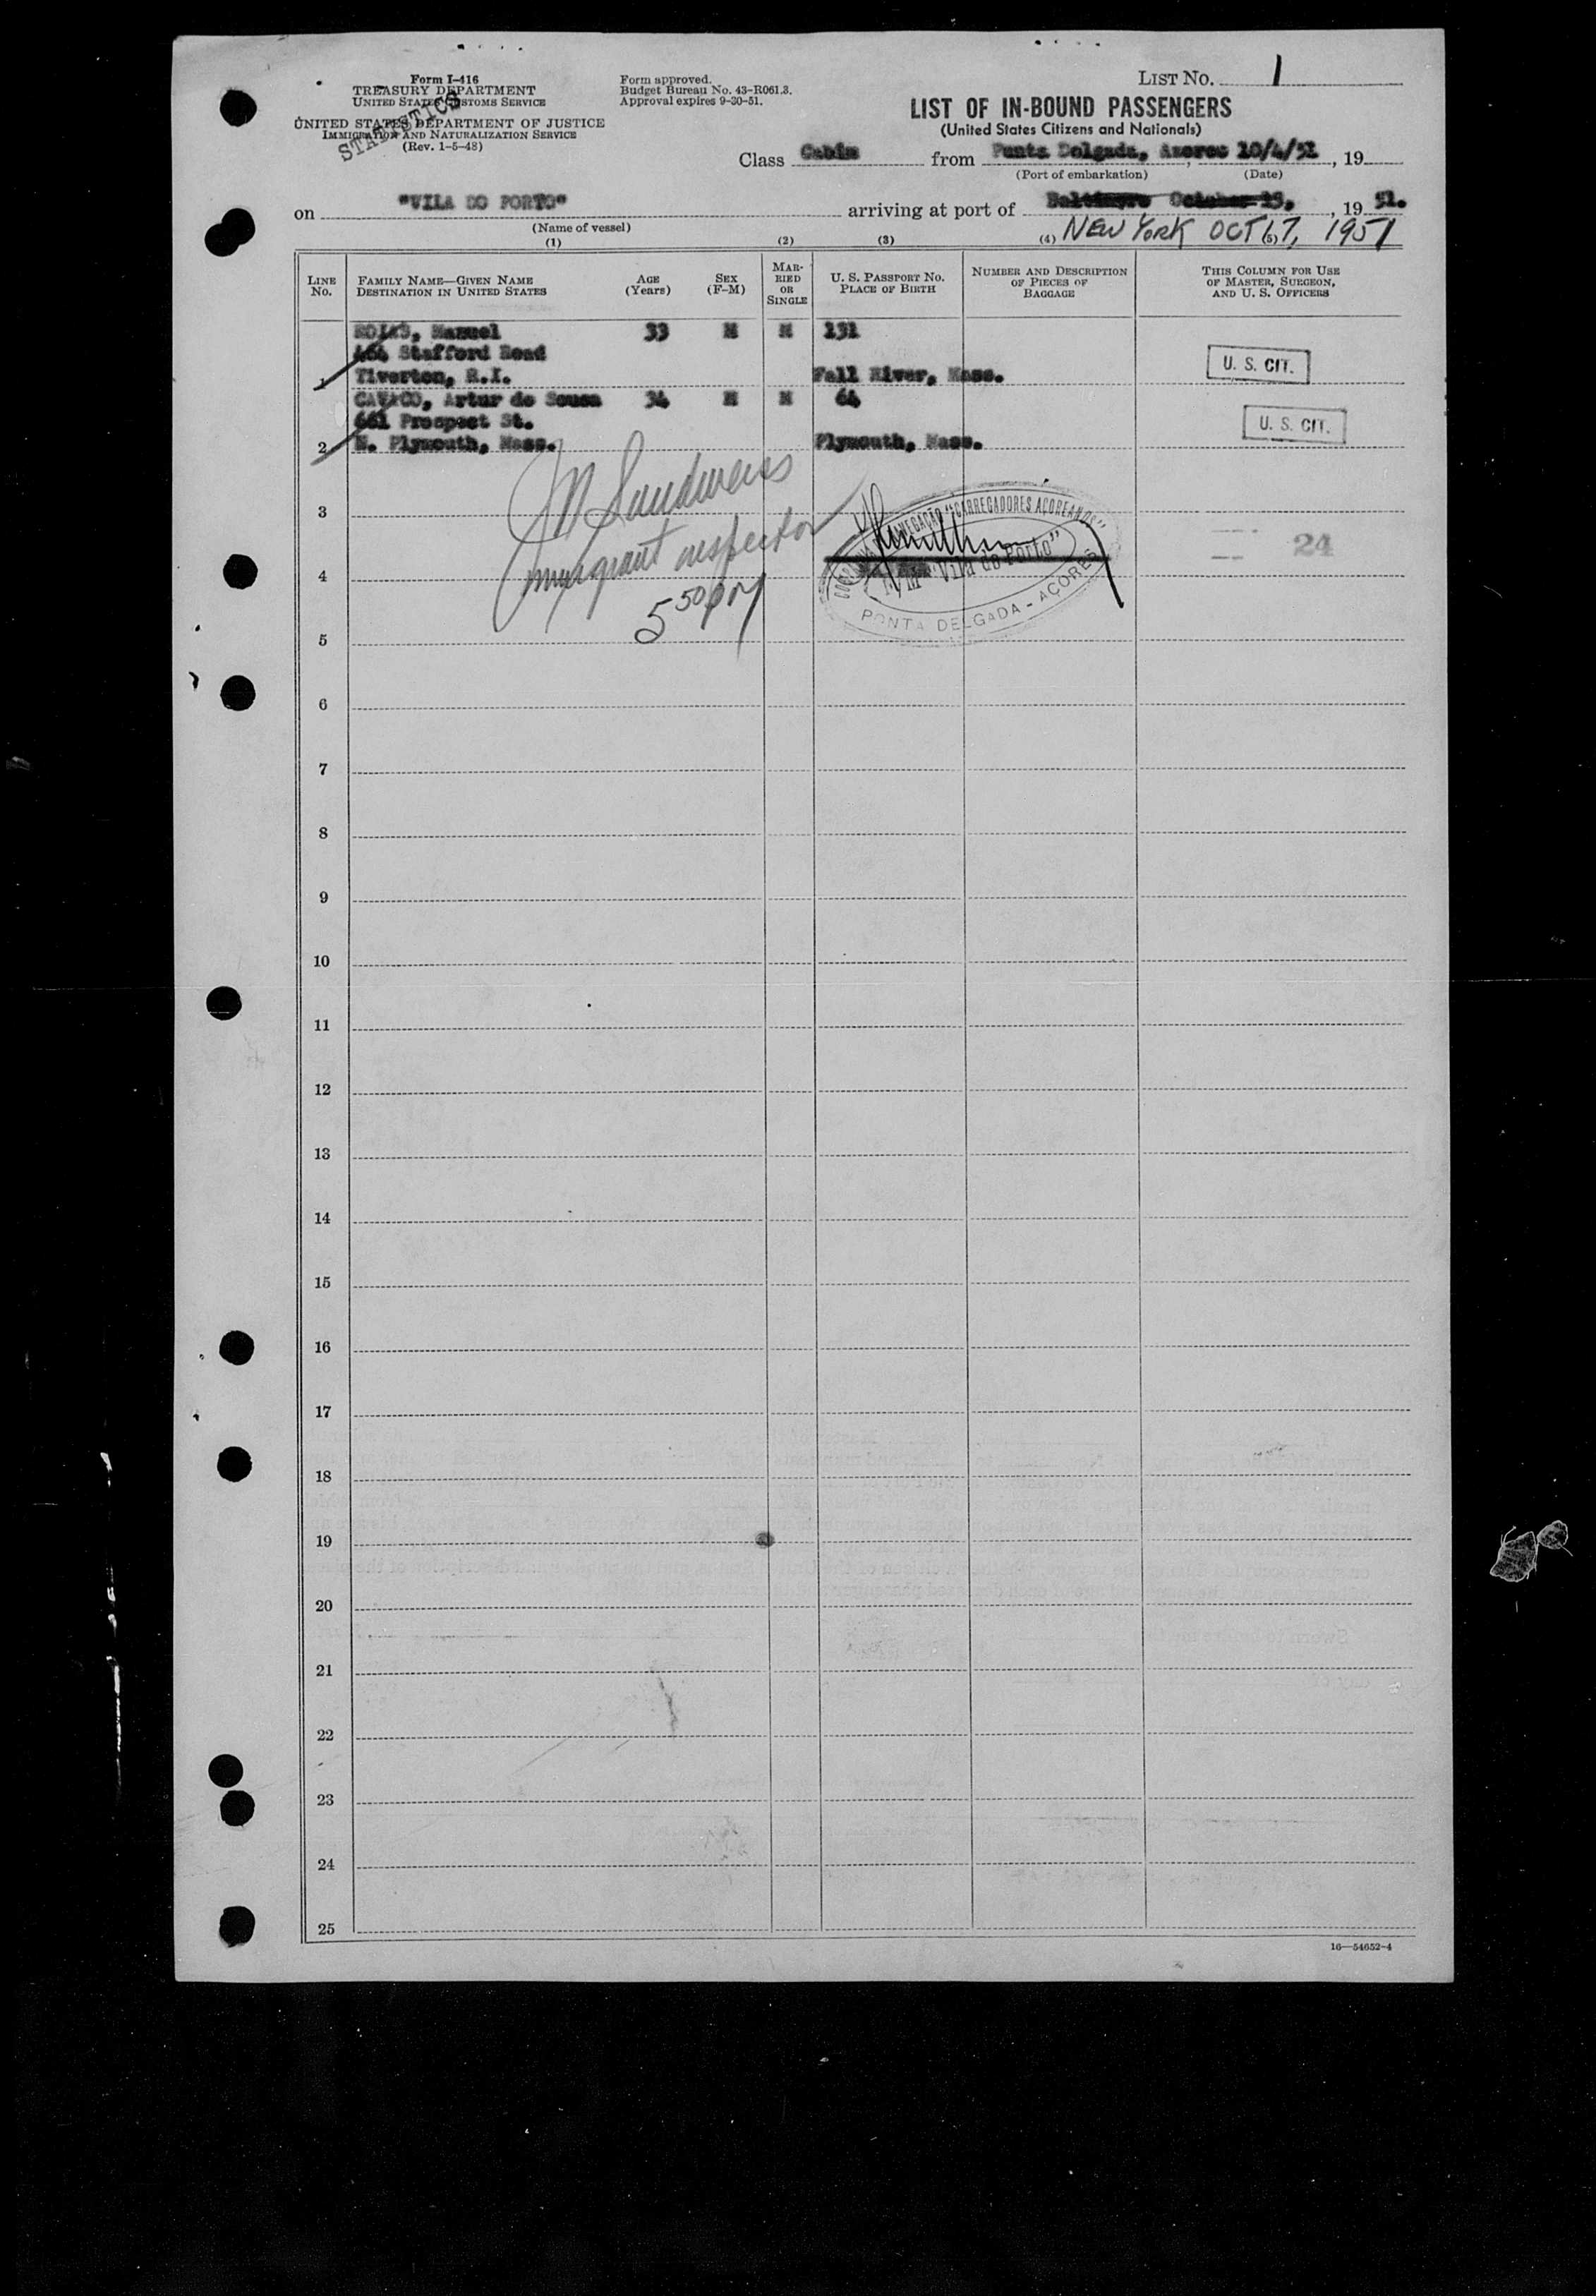 LIST NO. 1
Form I-416
TREASURY DEPARTMENT
UNITED STATES CUSTOMS SERVICE
UNITED STATES DEPARTMENT OF JUSTICE
IMMIGRATION AND NATURALIZATION SERVICE
(Rev. 1-5-48)
STATISTICS
Form approved.
Budget Bureau No. 43-R061.3.
Approval expires 9-30-51.
LIST OF IN-BOUND PASSENGERS
(United States Citizens and Nationals)
Class Cabin from Punta Delgada, Azores 10/4/51, 19
(Port of embarkation) (Date)
on "VILA DO PORTO" arriving at port of Baltimore October 15, 19 51.
(Name of vessel)
NEW YORK OCT 17, 1951
(1) (2) (3) (4) (5)
LINE No. FAMILY NAME—GIVEN NAME DESTINATION IN UNITED STATES AGE (Years) SEX (F-M) MARRIED OR SINGLE U. S. PASSPORT NO. PLACE OF BIRTH NUMBER AND DESCRIPTION OF PIECES OF BAGGAGE THIS COLUMN FOR USE OF MASTER, SURGEON, AND U. S. OFFICERS
Manuel 33 M M 131
464 Stafford Road
U. S. CIT.
1 Tiverton, R.I. Fall River, Mass.
CAVACO, Artur de Sousa 34 M M 64
661 Prospect St.
U. S. CIT.
2 N. Plymouth, Mass. Plymouth, Mass.
Sandweiss
3
immigrant inspector
"CARREGADORES AÇOREANOS"
"Vila do Porto"
24
4
5 50 PM
PONTA DELGADA - AÇORES
5
6
7
8
9
10
11
12
13
14
15
16
17
18
19
20
21
22
23
24
25
16—54652-4